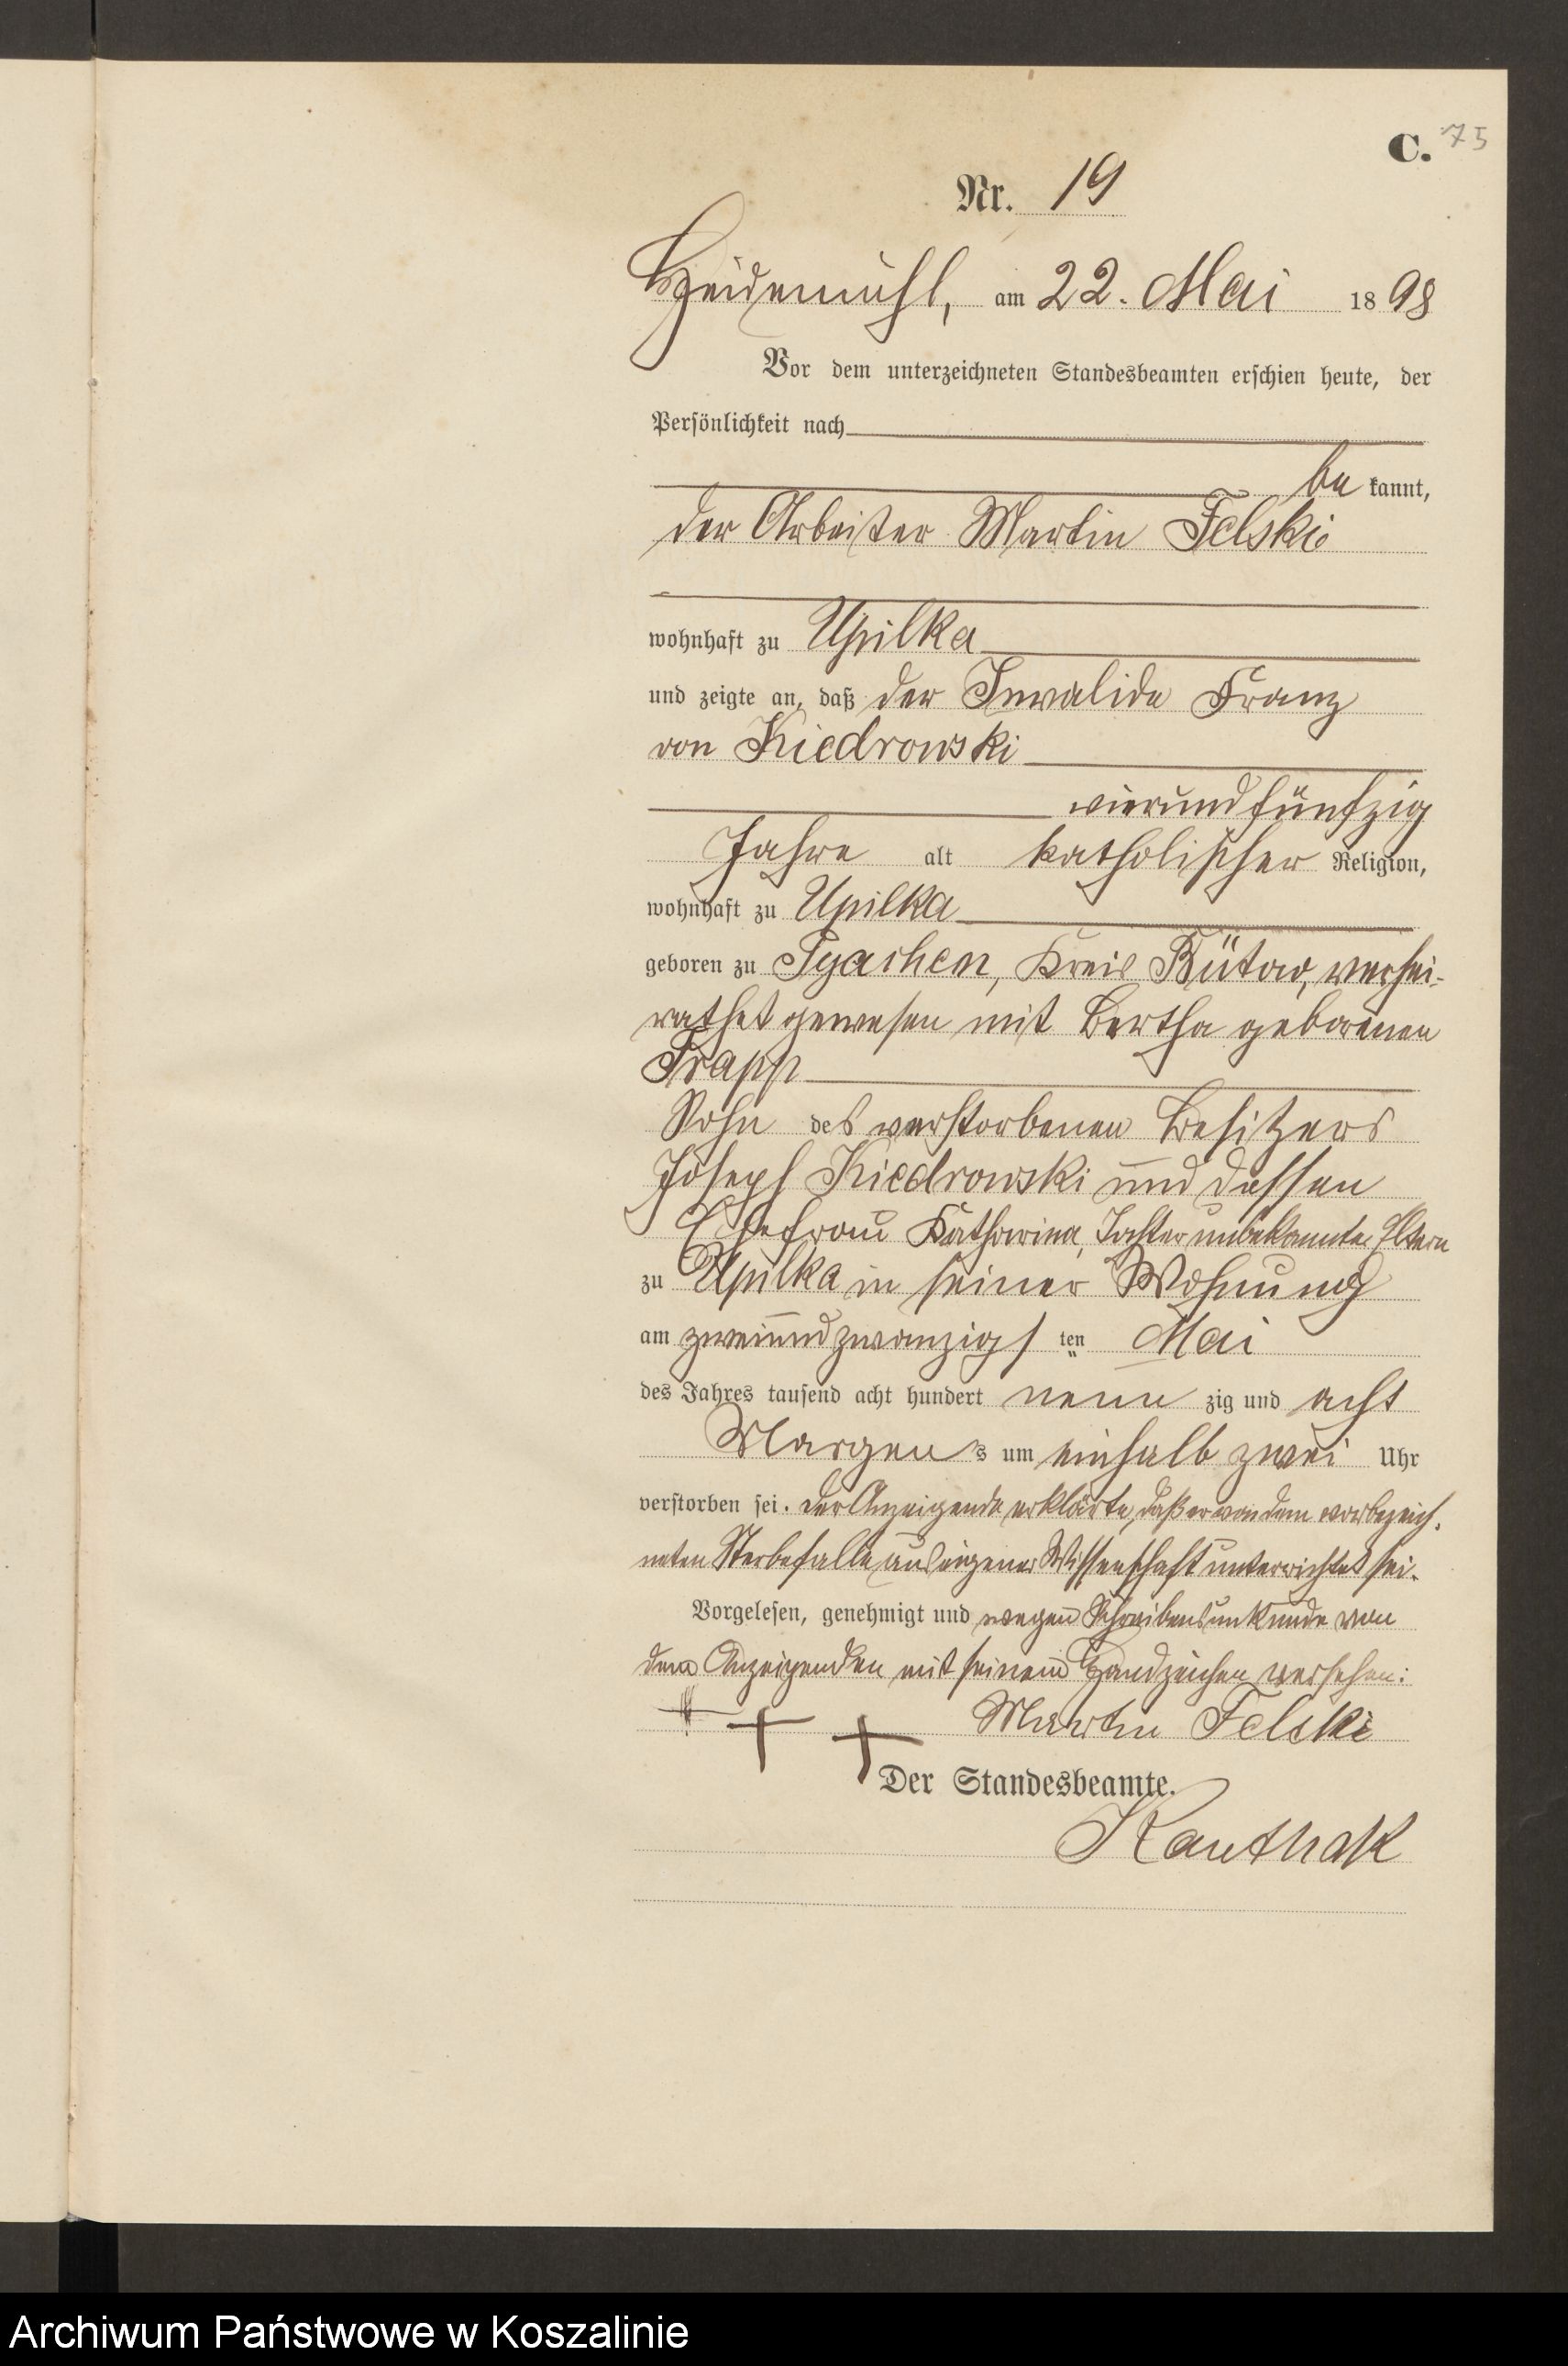 C. 75
Nr. 19
Heidemühl, am 22. Mai 1898
Vor dem unterzeichneten Standesbeamten erschien heute, der
Persönlichkeit nach
be kannt,
der Arbeiter Martin Felski
wohnhaft zu Upilka
und zeigte an, daß der Invalide Franz
von Kiedrowski
vierundfünfzig
Jahre alt katholischer Religion,
wohnhaft zu Upilka
geboren zu Kreis Bütow, verhei-
rathet gewesen mit Bertha geborenen
Trapp
Sohn des verstorbenen Besitzers
Joseph Kiedrowski und dessen
Ehefrau Katharina, Tochter unbekannte Eltern
zu Upilka in seiner Wohnung
am zweiundzwanzigsten Mai
des Jahres tausend acht hundert neun zig und acht
Morgens um einhalb zwei Uhr
verstorben sei. Der Anzeigende erklärte, daß er von dem vorbezeich-
neten Sterbefalle aus eigener Wissenschaft unterrichtet sei.
Vorgelesen, genehmigt und wegen Schreibensunkunde von
dem Anzeigenden mit seinem Handzeichen versehen:
+ + + Martin Felski
Der Standesbeamte.
Kauthak
Archiwum Państwowe w Koszalinie